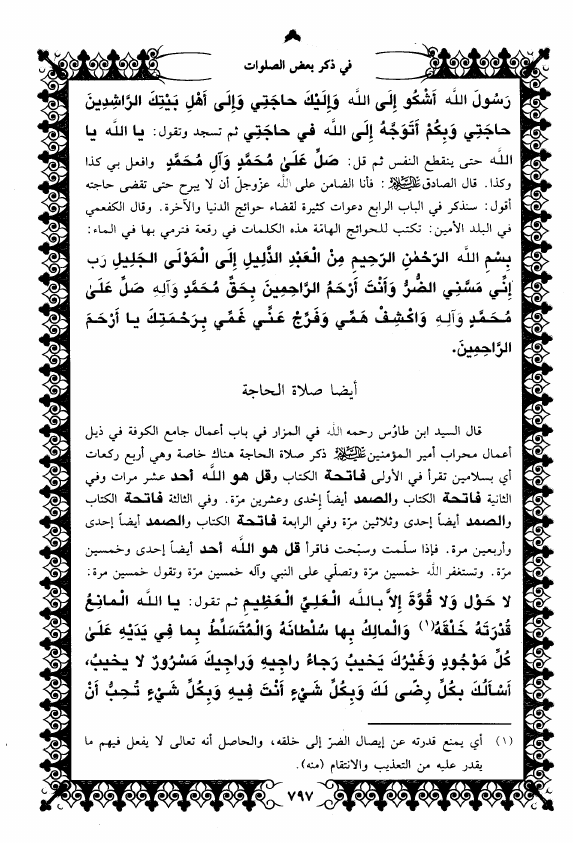 في ذكر بعض الصلوات
رَسُولَ اللَّه أَشْكُو إِلَى اللَّه وَإِلَيْكَ حاجَتِي وَإِلَى أَهْلِ بَيْتِكَ الرَّاشِدِينَ
حاجَتِي وَبِكُمْ أَتَوَجَّهُ إِلَى اللَّه في حاجَتِي ثم تسجد وتقول: يا اللَّه يا
اللَّه حتى ينقطع النفس ثم قل: صَلِّ عَلَىٰ مُحَمَّدٍ وَآلِ مُحَمَّدٍ وافعل بي كذا
وكذا. قال الصادق عليه السلام: فأنا الضامن على اللَّه عزّوجلّ أن لا يبرح حتى تقضى حاجته
أقول: سنذكر في الباب الرابع دعوات كثيرة لقضاء حوائج الدنيا والآخرة. وقال الكفعمي
في البلد الأمين: تكتب للحوائج الهامّة هذه الكلمات في رقعة فترمي بها في الماء:
بِسْمِ اللَّه الرَّحْمٰنِ الرَّحِيمِ مِنْ الْعَبْدِ الذَّلِيلِ إِلَى الْمَوْلَى الْجَلِيلِ رَب
إِنِّي مَسَّنِي الضُّرُّ وَأَنْتَ أَرْحَمُ الرَّاحِمِينَ بِحَقِّ مُحَمَّدٍ وَآلِهِ صَلِّ عَلَىٰ
مُحَمَّدٍ وَآلِهِ وَاكْشِفْ هَمِّي وَفَرِّجْ عَنِّي غَمِّي بِرَحْمَتِكَ يا أَرْحَمَ
الرَّاحِمِينَ.
أيضا صلاة الحاجة
قال السيد ابن طاوُس رحمه اللَّه في المزار في باب أعمال جامع الكوفة في ذيل
أعمال محراب أمير المؤمنين عليه السلام ذكر صلاة للحاجة هناك خاصة وهي أربع ركعات
أي بسلامين تقرأ في الأولى فاتحة الكتاب وقل هو اللَّه أحد عشر مرات وفي
الثانية فاتحة الكتاب والصمد أيضاً إحْدى وعشرين مرّة. وفي الثالثة فاتحة الكتاب
والصمد أيضاً إحدى وثلاثين مرّة وفي الرابعة فاتحة الكتاب والصمد أيضاً إحدى
وأربعين مرة. فإذا سلّمت وسبّحت فاقرأ قل هو اللَّه أحد أيضاً إحدى وخمسين
مرّة. وتستغفر اللَّه خمسين مرّة وتصلّي على النبي وآله خمسين مرّة وتقول خمسين مرة:
لا حَوْلَ وَلا قُوَّةَ إِلاَّ بِاللَّه الْعَلِيِّ الْعَظِيمِ ثم تقول: يا اللَّه الْمانِعُ
قُدْرَتَهُ خَلْقَهُ(١) وَالْمالِكُ بِها سُلْطانَهُ وَالْمُتَسَلِّطُ بِما فِي يَدَيْهِ عَلَىٰ
كُلِّ مَوْجُودٍ وَغَيْرُكَ يَخيبُ رَجاءُ راجِيهِ وَراجِيكَ مَسْرُورٌ لا يخيبُ،
أَسْأَلُكَ بِكُلِّ رِضًى لَكَ وَبِكُلِّ شَيْءٍ أَنْتَ فِيهِ وَبِكُلِّ شَيْءٍ تُحِبُّ أَنْ
(١) أي يمنع قدرته عن إيصال الضرّ إلى خلقه، والحاصل أنه تعالى لا يفعل فيهم ما
يقدر عليه من التعذيب والانتقام (منه).
٧٩٧